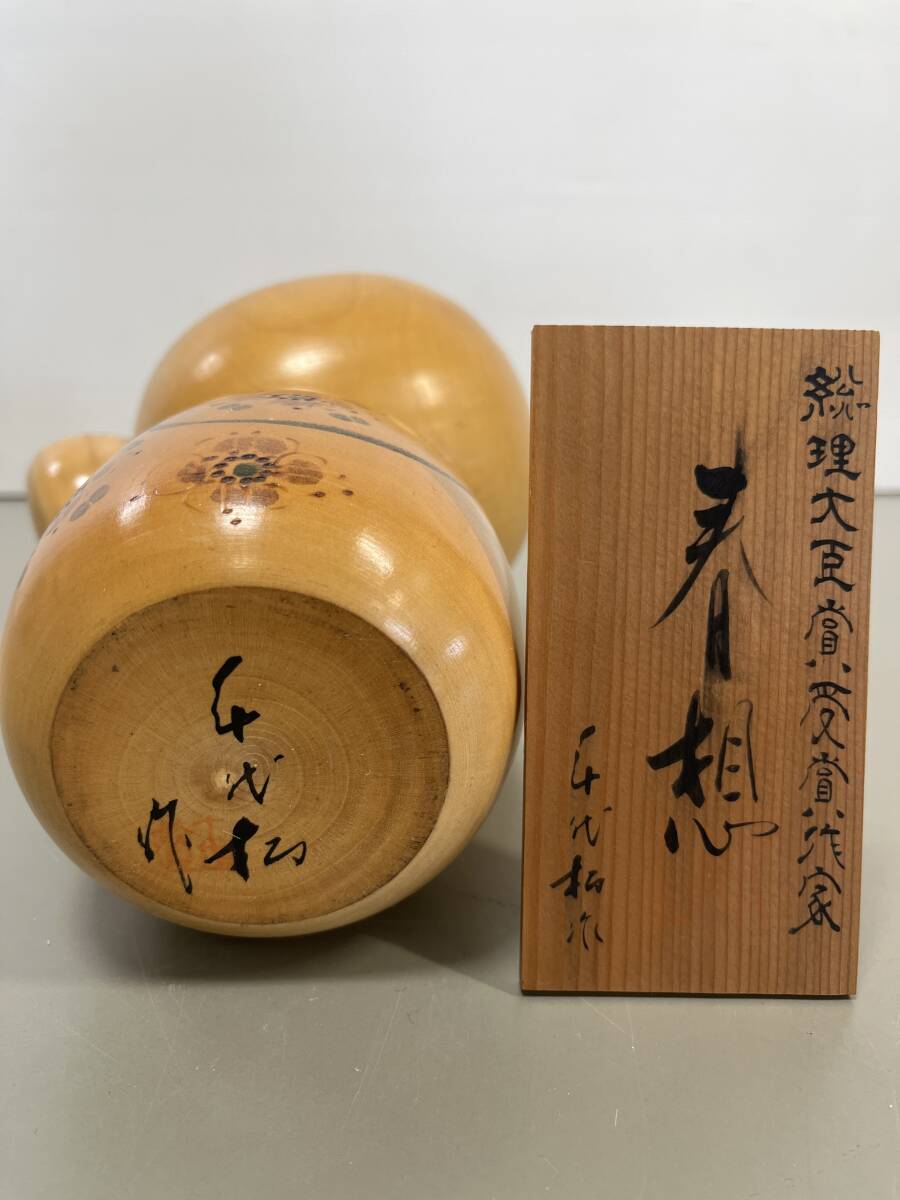 千代松
作
総理大臣賞受賞作家
春想
千代松作